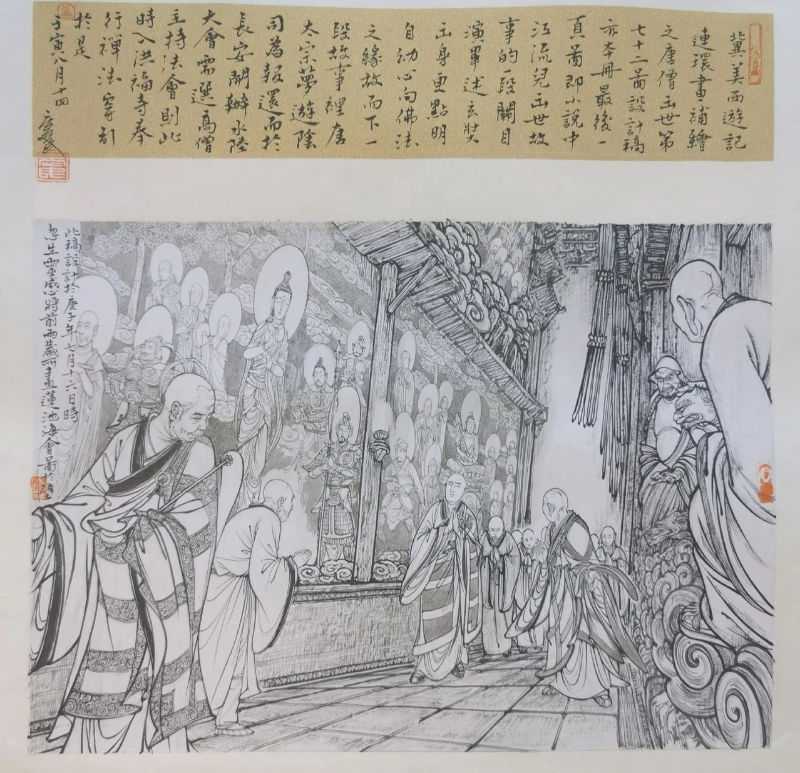 冀美西游記
連環畫補繪
之唐僧出世第
七十二啚設計稿
亦本冊最後一
頁啚即小說中
江流兒出世故
事的一段關目
演畢述玄奘
出身更點明
自幼心向佛法
之緣故而下一
段故事裡唐
太宗夢遊陰
司為報還而於
長安開辦水陸
大會需選高僧
主持法會則此
時入洪福寺奉
行禪法
於是
壬寅八月十四
此稿設計於庚子年七月十六日時
忽生靈感將前兩歲所畫蓮池海會啚於